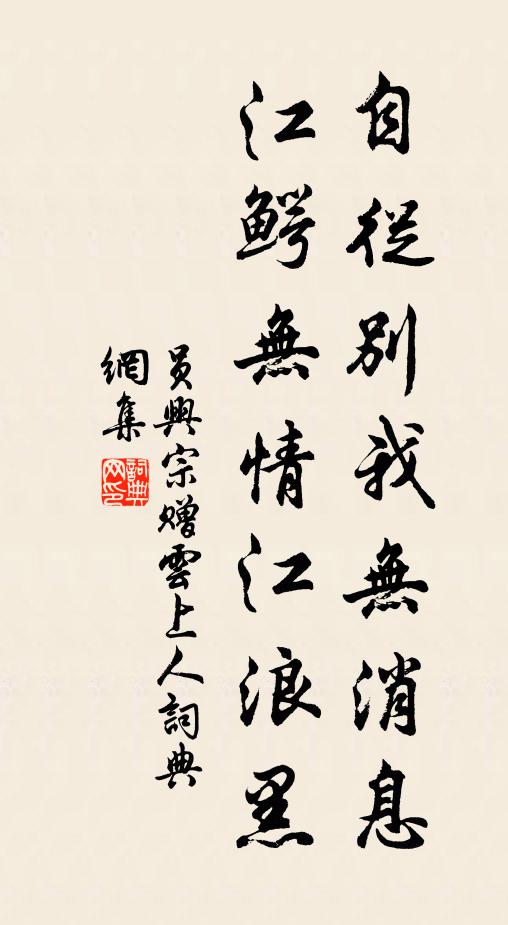 自從別我無消息
江鰐無情江浪黑
員興宗贈雲上人詞典
網集
詞典網印